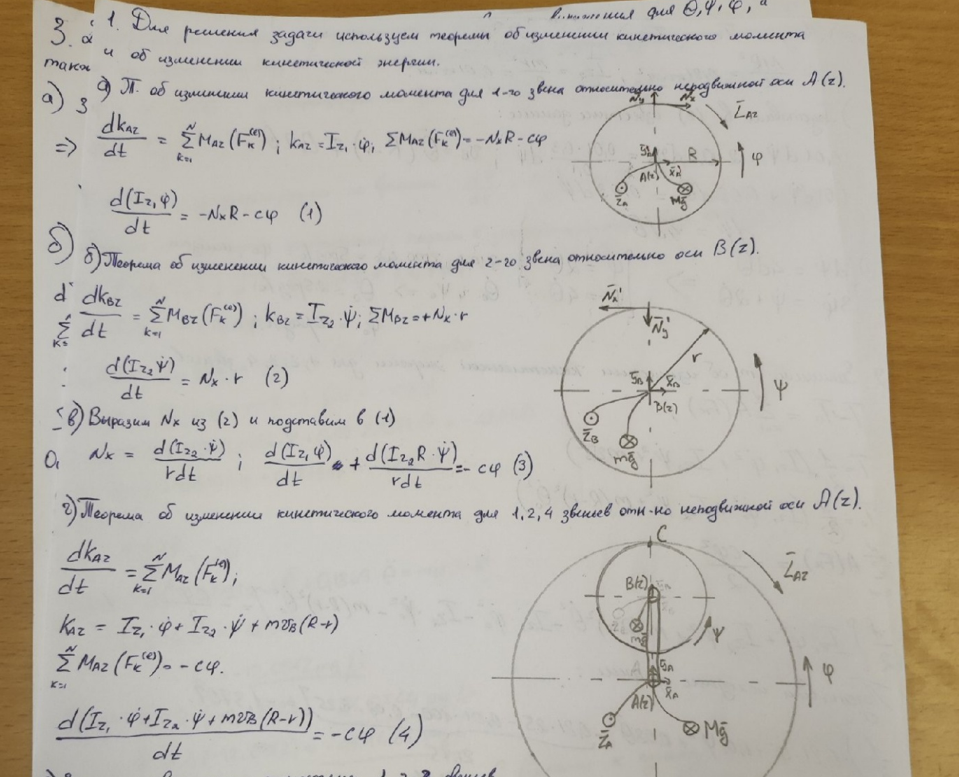 ения для θ, ψ, φ, а
1. Для решения задачи используем теоремы об изменении кинетического момента
и об изменении кинетической энергии.
а) Т. об изменении кинетического момента для 1-го звена относительно неподвижной оси A(z).
dk_Az/dt = Σ_{k=1}^{N} M_Az(F_k^(e)); k_Az = I_z1·φ̇; ΣM_Az(F_k^(e)) = -N_x R - cφ
d(I_z1 φ̇)/dt = -N_x R - cφ (1)
N_y N_x
L̄_Az
R
ȳ_A
A(z) x̄_A
φ
z̄_A Mḡ
б) Теорема об изменении кинетического момента для 2-го звена относительно оси B(z).
dk_Bz/dt = Σ_{k=1}^{N} M_Bz(F_k^(e)); k_Bz = I_z2·ψ̇; ΣM_Bz = +N_x·r
d(I_z2 ψ̇)/dt = N_x·r (2)
N̄_x' N̄_y'
r
ȳ_B x̄_B
B(z)
ψ
z̄_B mḡ
в) Выразим N_x из (2) и подставим в (1)
N_x = d(I_z2·ψ̇)/rdt; d(I_z1 φ̇)/dt + d(I_z2 R·ψ̇)/rdt = -cφ (3)
г) Теорема об изменении кинетического момента для 1, 2, 4 звеньев отн-но неподвижной оси A(z).
dk_Az/dt = Σ_{k=1}^{N} M_Az(F_k^(e));
k_Az = I_z1·φ̇ + I_z2·ψ̇ + mv_B(R-r)
Σ_{k=1}^{N} M_Az(F_k^(e)) = -cφ.
d(I_z1·φ̇ + I_z2·ψ̇ + mv_B(R-r))/dt = -cφ (4)
C
L̄_Az
B(z)
ψ
ȳ_A
x̄_A
φ
A(z)
z̄_A Mḡ